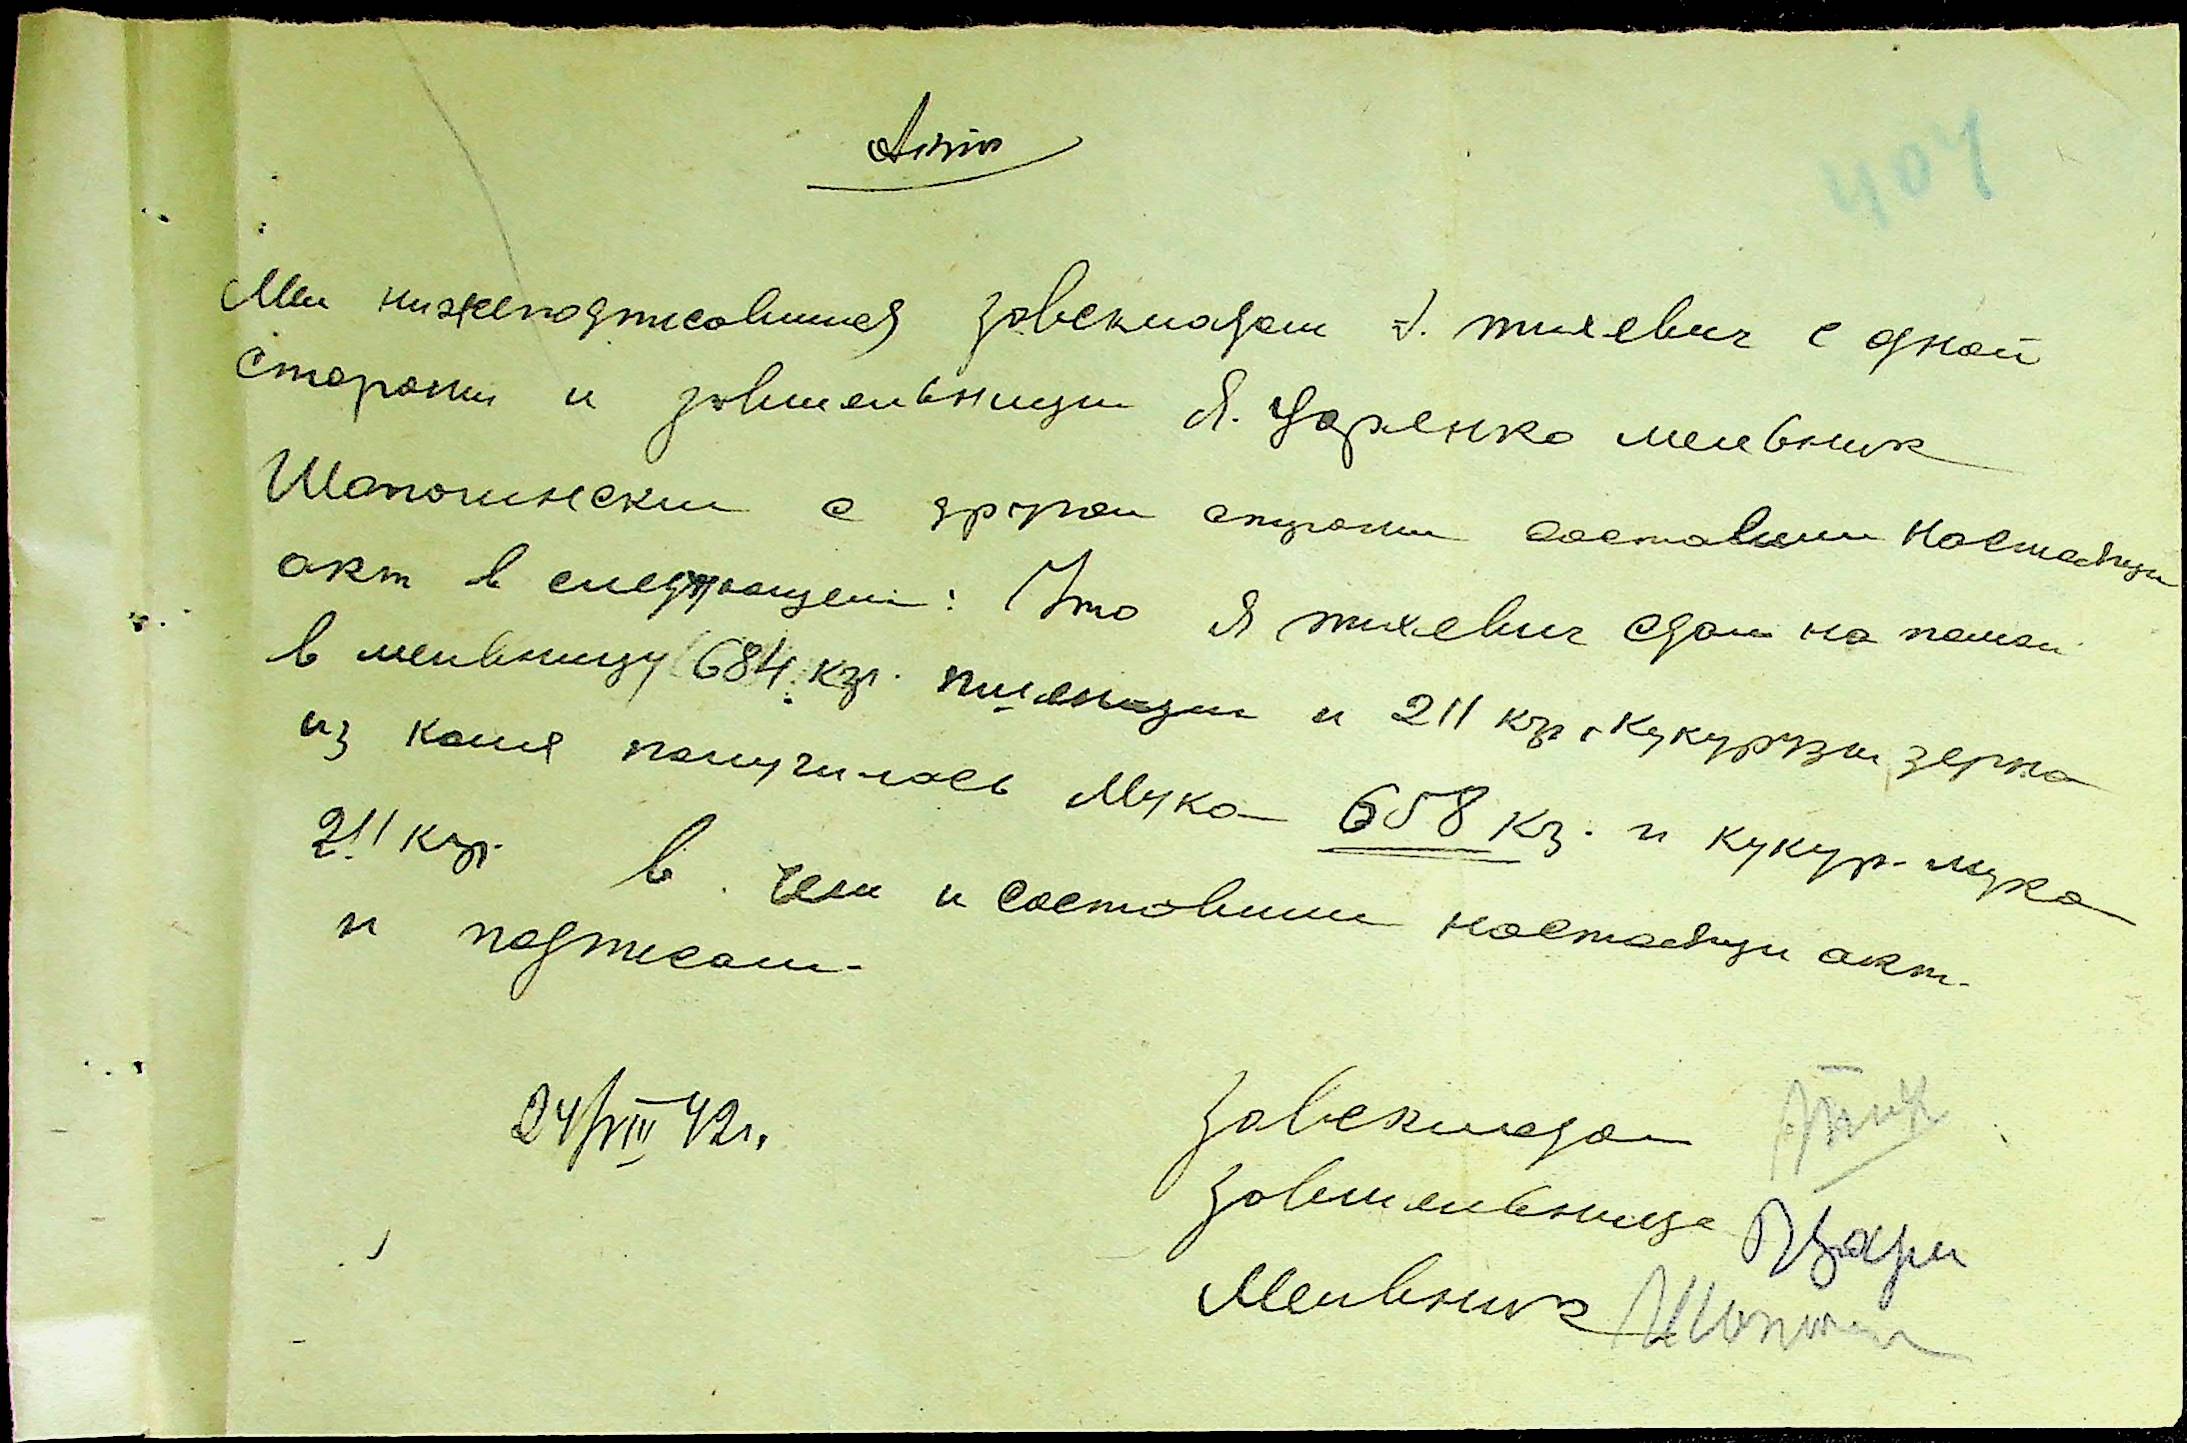 Акт
404
Ми нижеподписавшиеся завскладом тихевич с одной
сторони и завмельници Я. Царенко мельник
Шапошнски с другой сторони составили настаящи
акт в следующем: Что я тихевич сдал на помол
в мельницу 684 кгр. пшеници и 211 кгр. кукурузи зерна
из коших получилось Мука 658 кг. и кукур. мука
211 кгр. в чем и составили настаящи акт
и подписали.
24/VIII 42г.
Завскладом
Завмельнице
Мельник